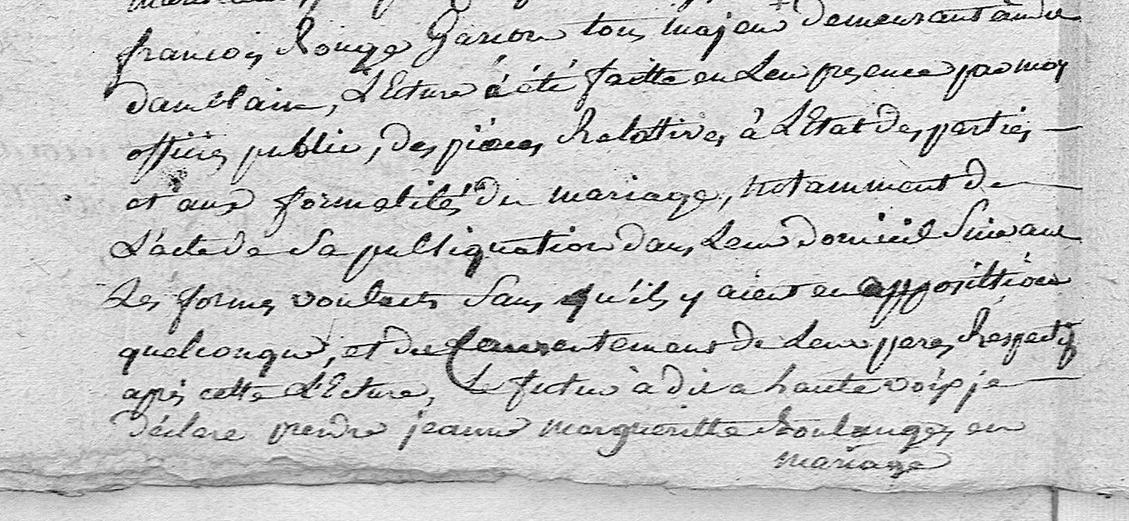 françois Rouge Garçon tous majeur demeurant audit
lecture à été faitte en Leur presence par moy
officier public, des pièces Relattives à L'Etat des parties
et aux formalités du mariage, notamment de
L'acte de Sa publiquation dans Leur domicil Suivant
Les formes voulues Sans qu'ils y aient eu opposittion
quelconque, et du Consentement de Leur peres Respectif
après cette Lecture, Le futur à dit a haute voix je
déclare prendre jeanne margueritte Roulanges en
mariage